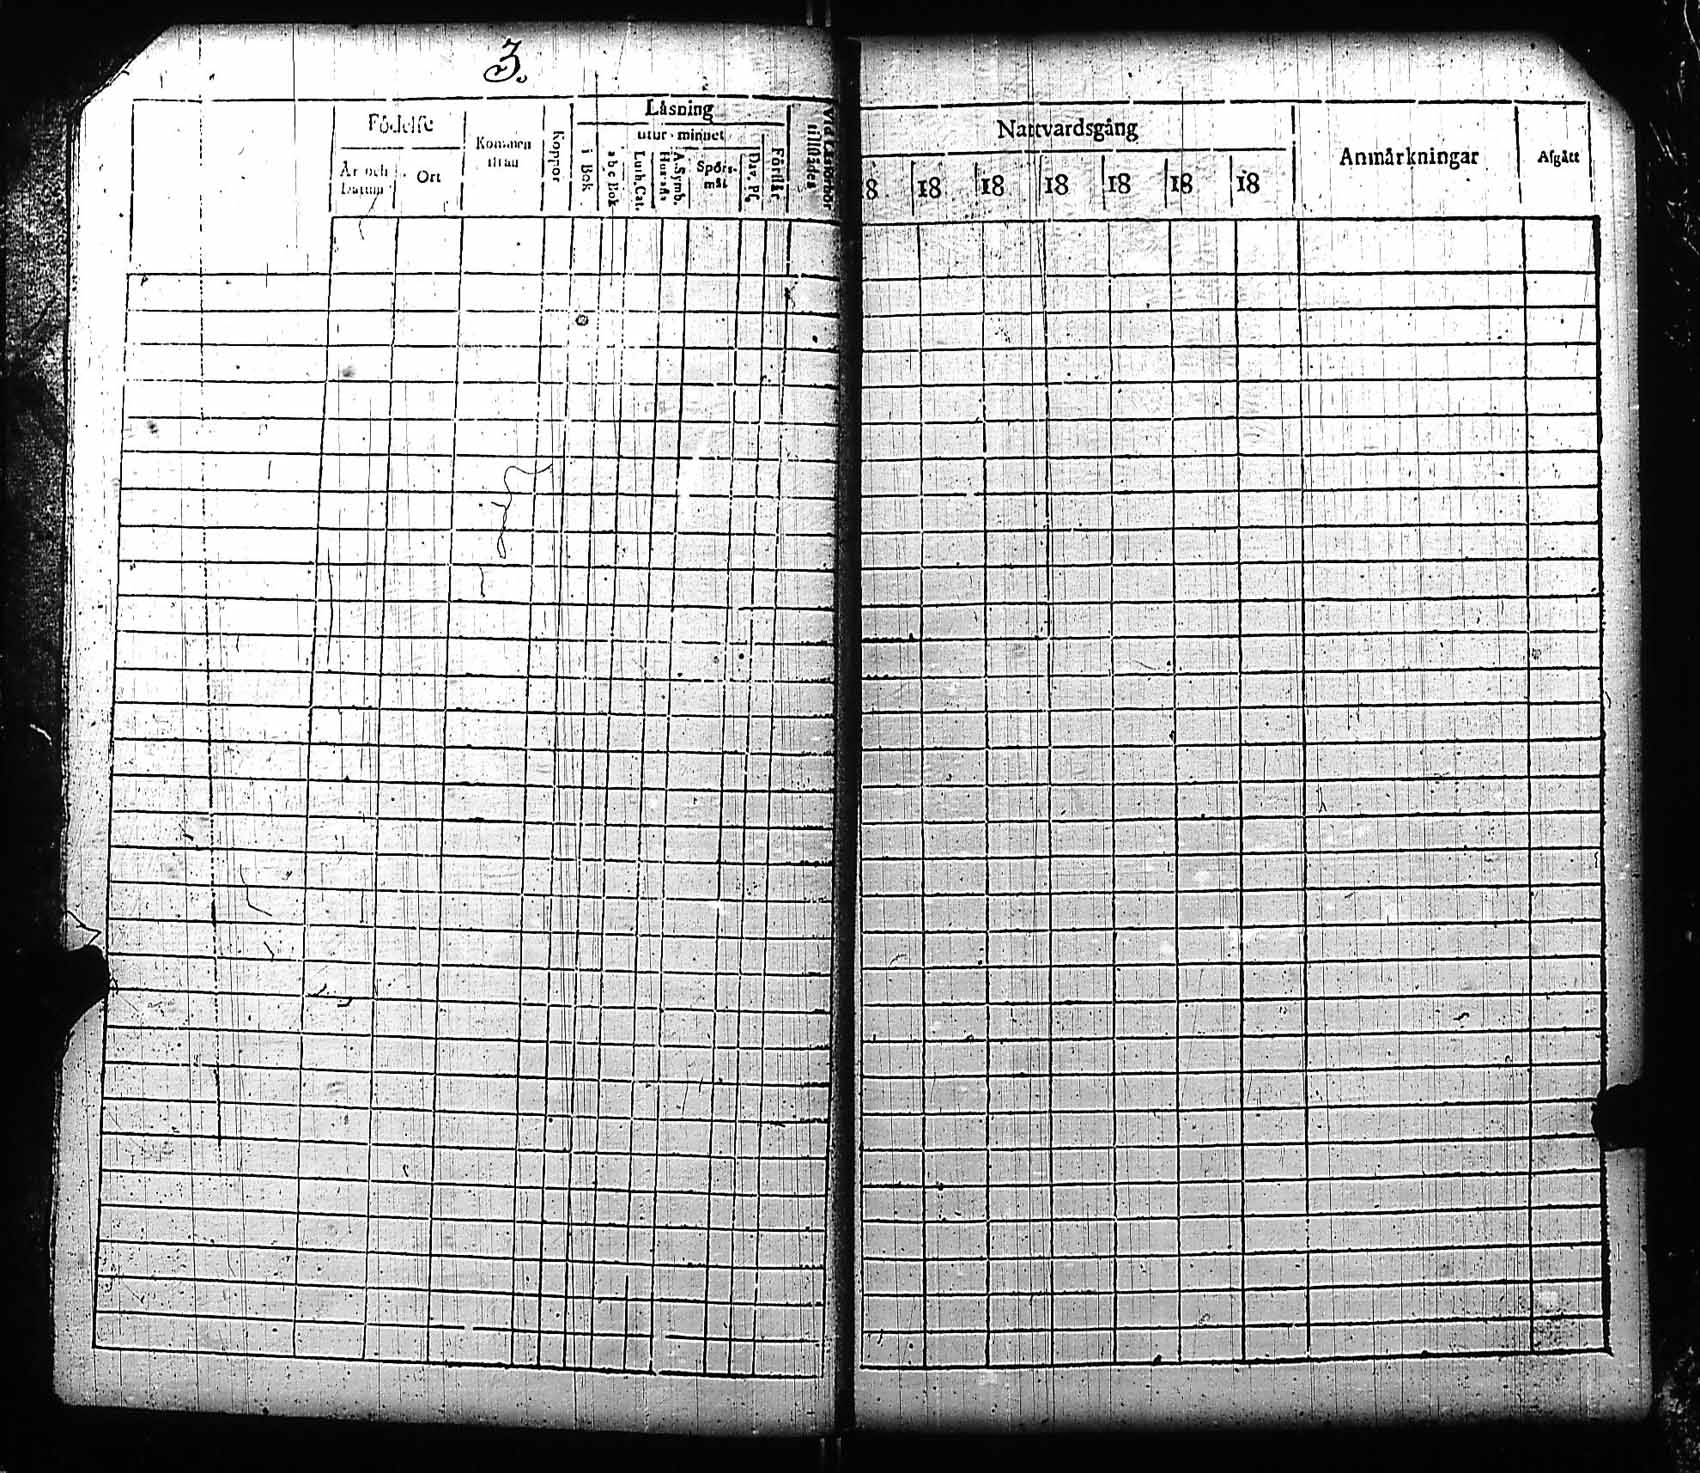 3.
Födelse
År och Datum
Ort
Kommen ifrån
Koppor
Läsning
i Bok
utur minnet
a b c Bok
Luth. Cat.
A. Symb.
Spörs-
mål
Dav. Ps.
Förstår
Vid Läsförhör
tillstädes
Nattvardsgång
8 18 18 18 18 18 18
Anmärkningar
Afgått